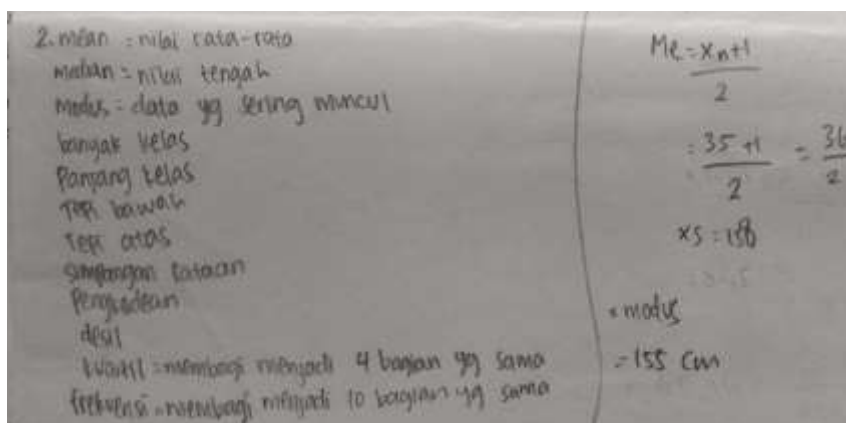 2. mean = nilai rata-rata
median = nilai tengah
modus = data yg sering muncul
banyak kelas
Panjang kelas
Tepi bawah
Tepi atas
simpangan rataan
desil
kuartil = membagi menjadi 4 bagian yg sama
frekuensi = membagi menjadi 10 bagian yg sama
Me = xn+1
2
= 35 +1 = 36
2 2
= modus
= 155 cm